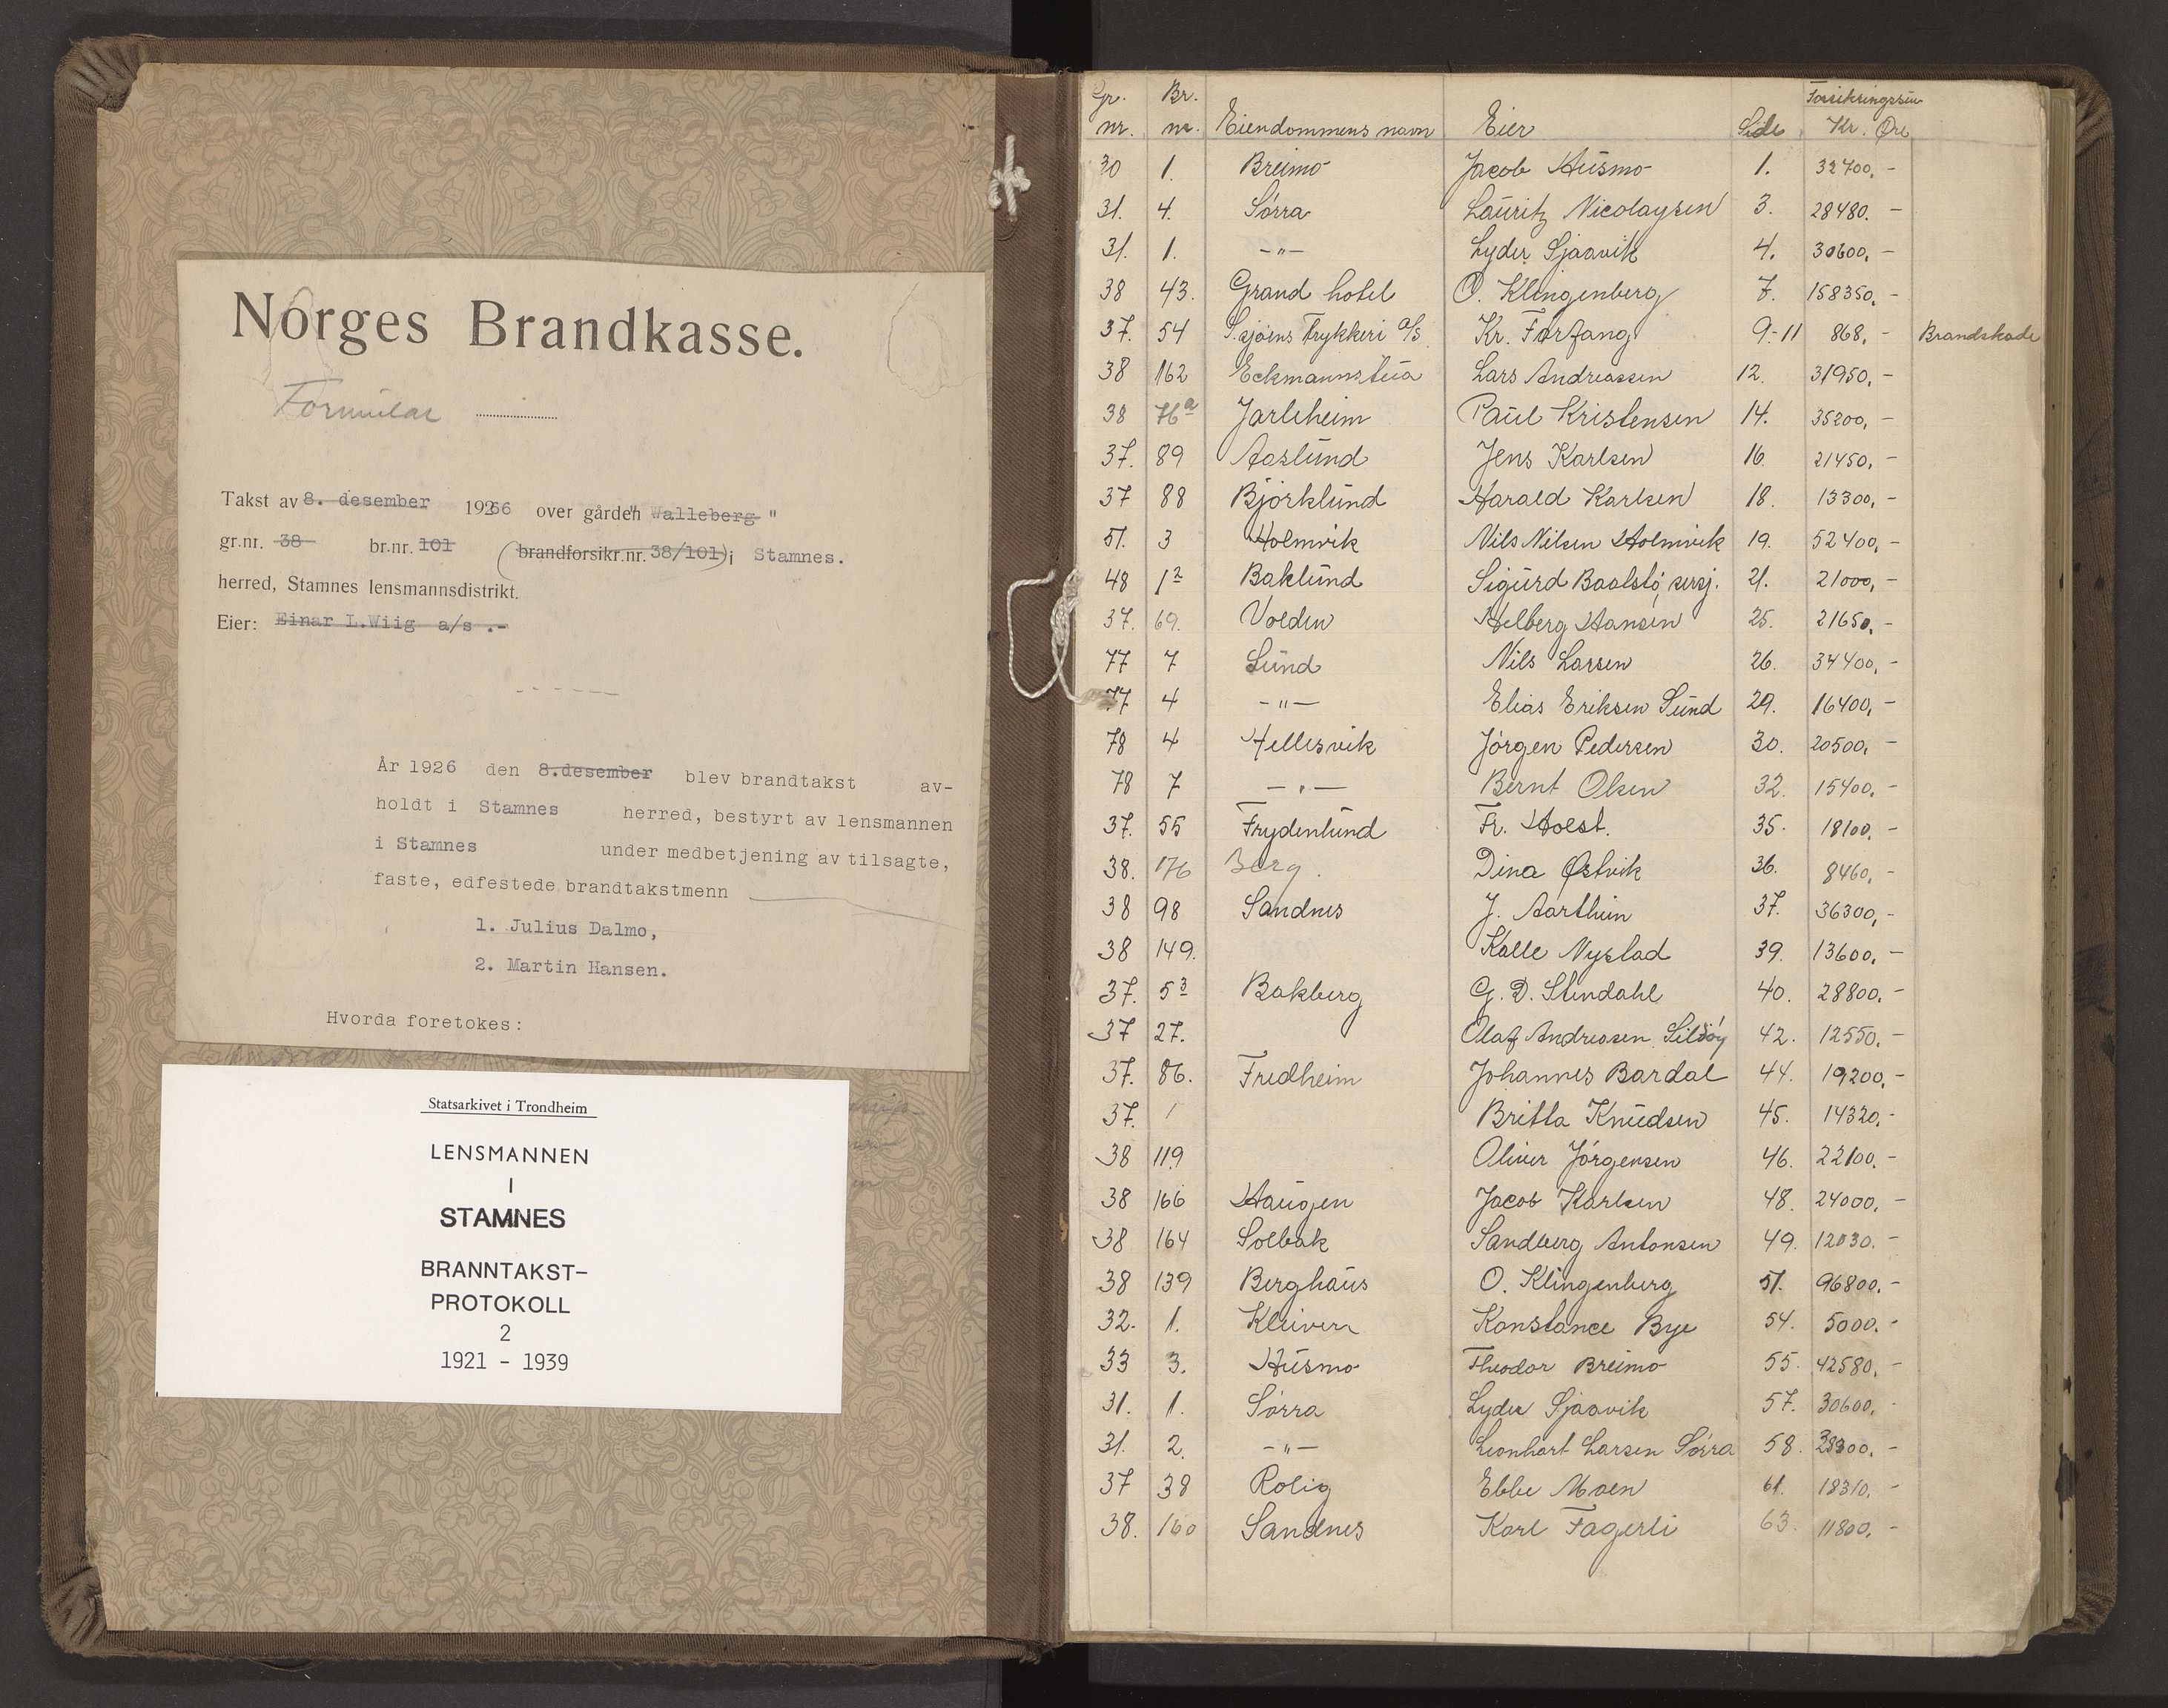 Norges Brandkasse.
Formular
Takst av 8. desember 1926 over gården "Walleberg"
gr.nr. 38 br.nr. 101 (brandforsikr.nr. 38/101) i Stamnes.
herred, Stamnes lensmannsdistrikt.
Eier: Einar L.Wiig a/s .-
År 1926 den 8.desember blev brandtakst av-
holdt i Stamnes herred, bestyrt av lensmannen
i Stamnes under medbetjening av tilsagte,
faste, edfestede brandtakstmenn
1. Julius Dalmo,
2. Martin Hansen.
Hvorda foretokes:
Statsarkivet i Trondheim
LENSMANNEN
I
STAMNES
BRANNTAKST-
PROTOKOLL
2
1921 - 1939
Gr. nr. Br. nr. Eiendommens navn Eier Side Forsikringssum Kr. Øre
30 1. Breimo Jacob Husmo 1. 32700,-
31. 4. Sørra Lauritz Nicolaysen 3. 28480.-
31. 1. -"- Lyder Sjaavik 4. 30600,-
38 43. Grand hotel O. Klingenberg 7. 158350,-
37. 54 S.sjøens Trykkeri a/s Kr. Forfang 9-11 868,- Brandskade
38 162 Eckmannstua Lars Andreassen 12. 31950,-
38 76a Jarleheim Paul Kristensen 14. 35200,-
37. 89 Aaslund Jens Karlsen 16. 21450,-
37 88 Bjørklund Harald Karlsen 18. 13300,-
51. 3 Holmvik Nils Nilsen Holmvik 19. 52400,-
48 1² Baklund Sigurd Baalstø, sersj. 21. 21000,-
37. 69. Volden Helberg Hansen 25. 21650,-
77 7 Sund Nils Larsen 26. 34400,-
77 4 -"- Elias Eriksen Sund 29. 16400,-
78 4 Hellesvik Jørgen Pedersen 30. 20500,-
78 7 -"- Bernt Olsen 32. 15400,-
37. 55 Frydenlund Fr. Holst. 35. 18100,-
38. 176 Berg. Dina Østvik 36. 8460,-
38 98 Sandnes J. Aarthun 37. 36300,-
38 149. Kalle Nystad 39. 13600,-
37. 5³ Bakberg G. D. Stendahl 40. 28800,-
37 27. Olaf Andreasen Sildøy 42. 12550,-
37. 86. Fredheim Johannes Bardal 44. 19200,-
37. 1 Britta Knudsen 45. 14320,-
38 119 Oliver Jørgensen 46. 22100,-
38 166 Haugen Jacob Karlsen 48. 24000,-
38 164 Solbak Sandberg Antonsen 49. 12030.-
38 139 Berghaus O. Klingenberg 51. 96800.-
32. 1. Kluven Konstance Bye 54. 5000.-
33 3. Husmo Theodor Breimo 55. 42580,-
31. 1. Sørra Lyder Sjaavik 57. 30600,-
31. 2. -"- Leonhart Larsen Sørra 58.
37 38 Rolig Ebbe Moen 61. 18310,-
38. 160 Sandnes Karl Fagerli 63. 11800,-